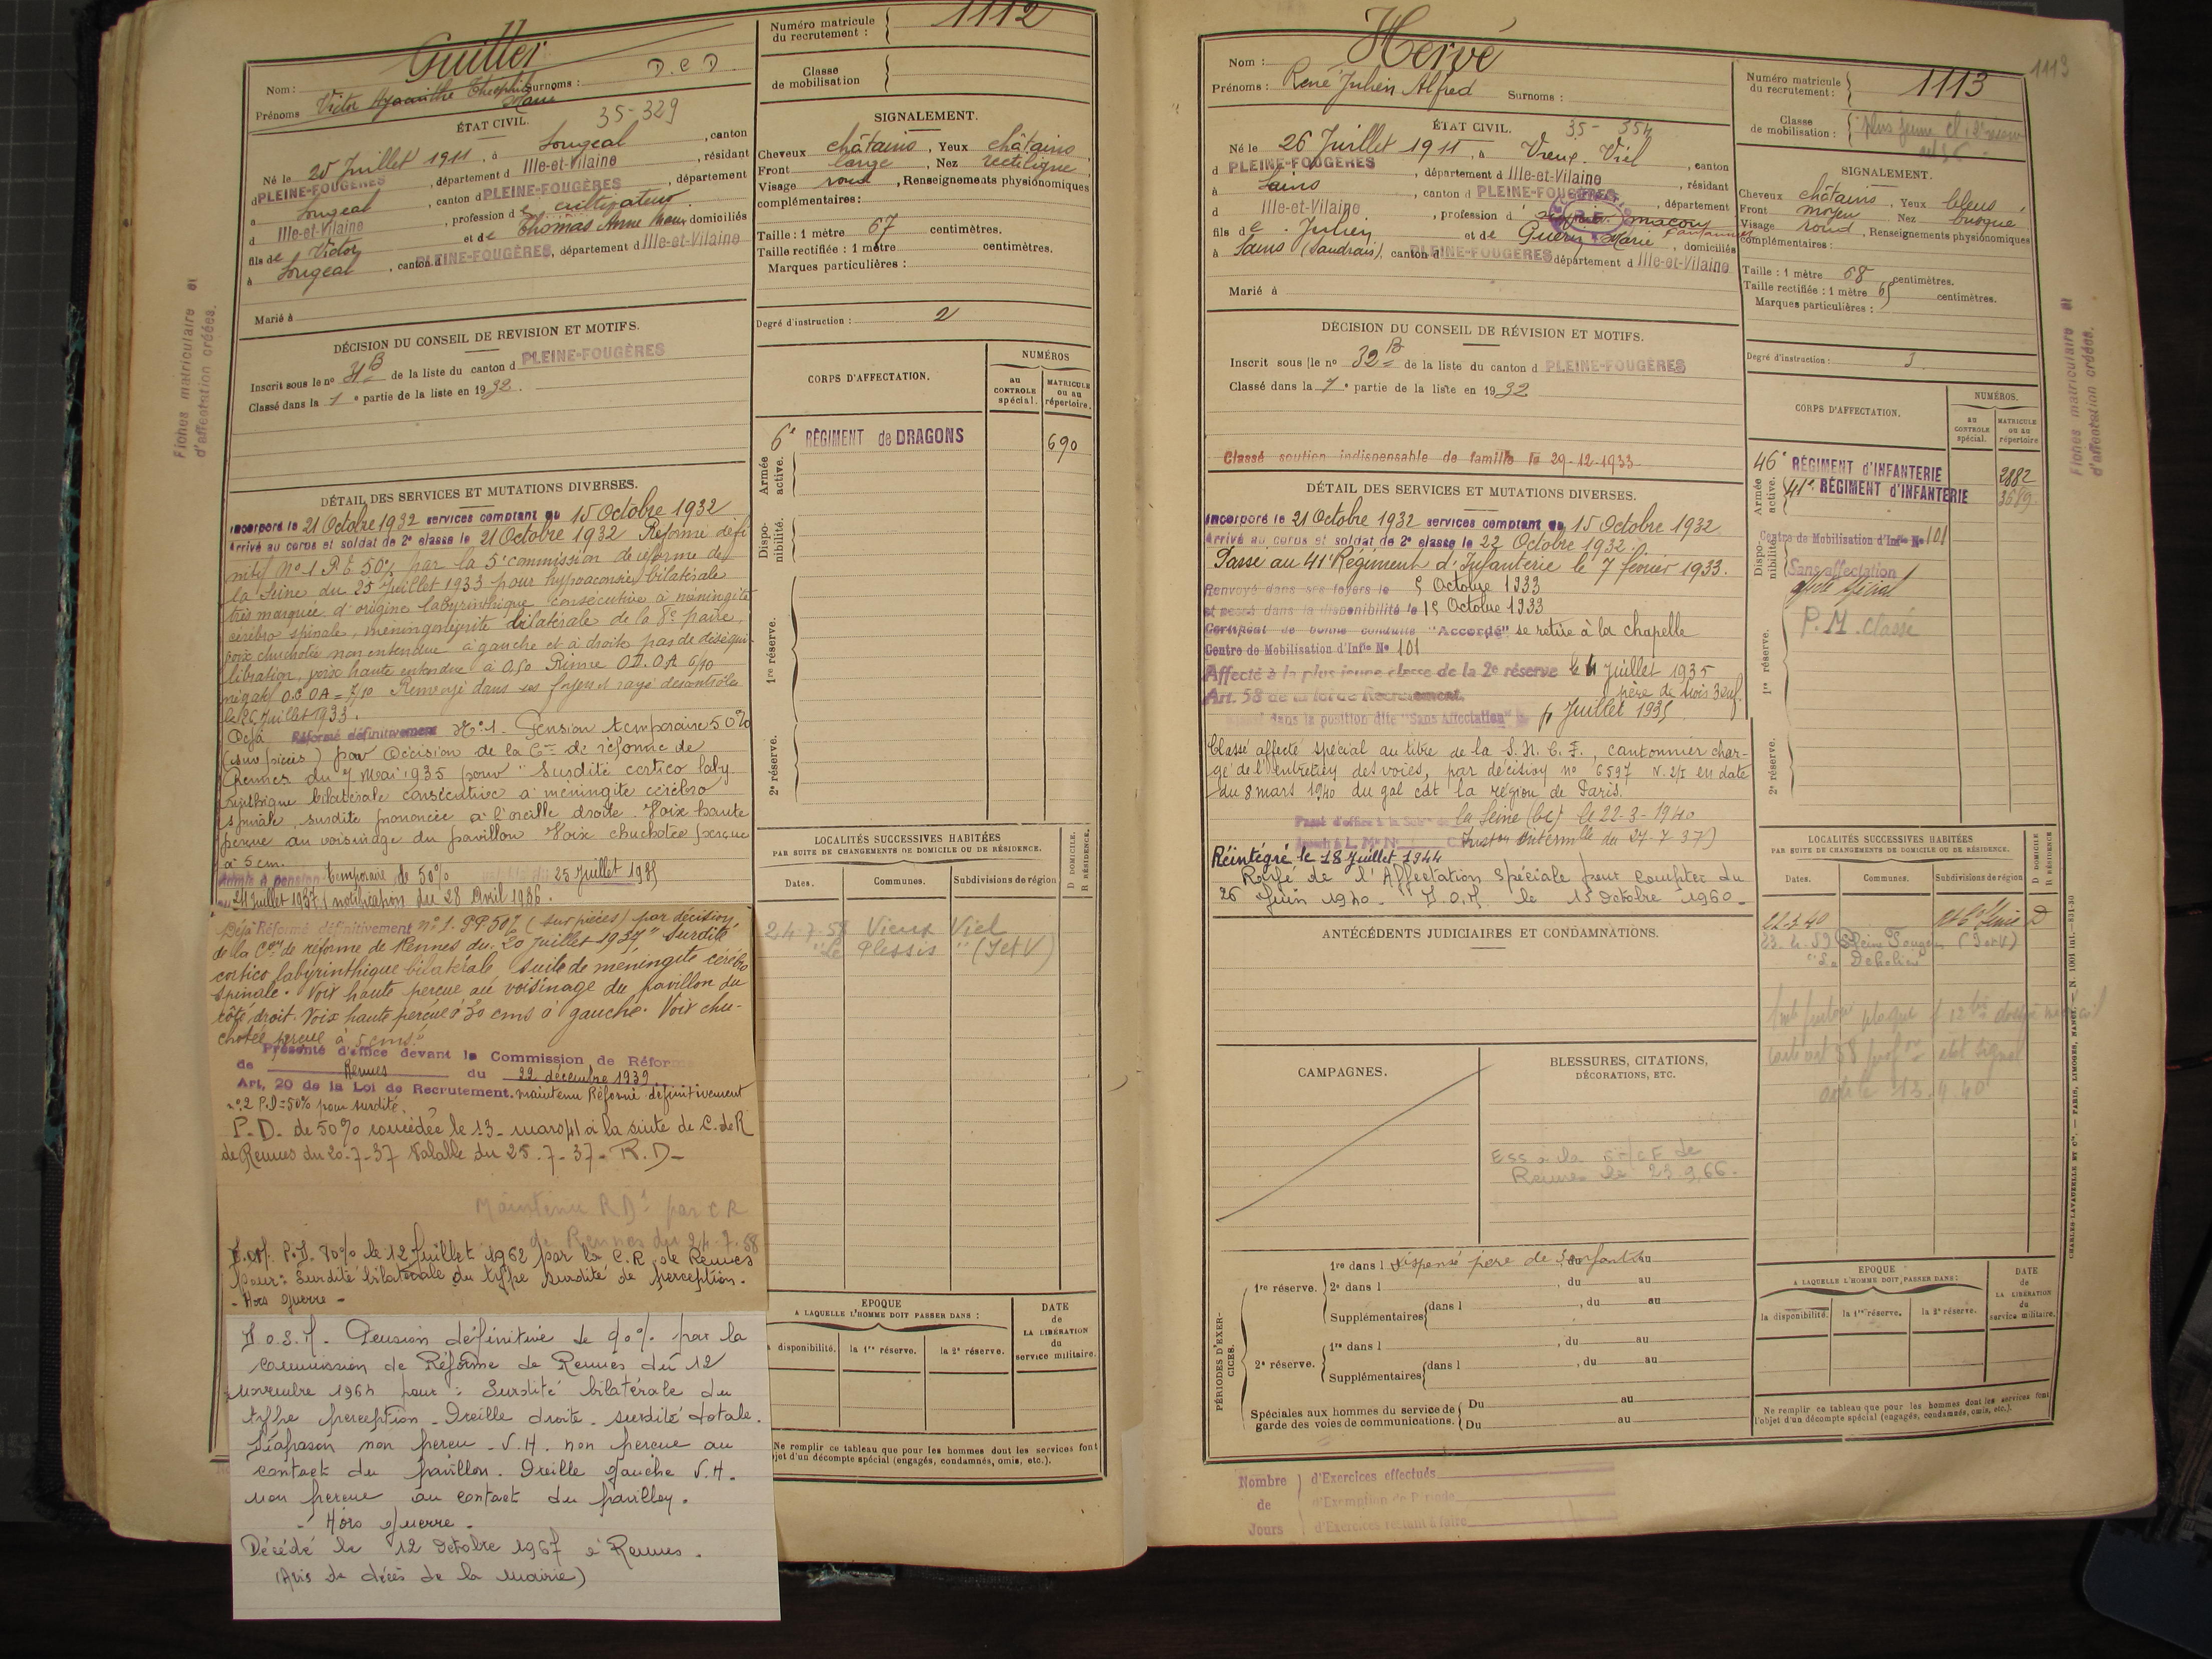 Guiller
Nom :
Prénoms Victor Hyacinthe Théophile Marie Surnoms :
D.C.D
ÉTAT CIVIL. 35-329
Né le 25 Juillet 1911, à Sougeal, canton
d PLEINE-FOUGÈRES, département d Ille-et-Vilaine, résidant
à Sougeal, canton d PLEINE-FOUGÈRES, département
d Ille-et-Vilaine, profession de cultivateur
fils de Victor et de Thomas Anne Marie domiciliés
à Sougeal, canton d PLEINE-FOUGÈRES, département d Ille-et-Vilaine
Marié à
DÉCISION DU CONSEIL DE REVISION ET MOTIFS.
Inscrit sous le nº 31 B de la liste du canton d PLEINE-FOUGÈRES
Classé dans la 1e partie de la liste en 1932.
DÉTAIL DES SERVICES ET MUTATIONS DIVERSES.
Incorporé le 21 Octobre 1932 services comptant du 15 Octobre 1932
Arrivé au corps et soldat de 2e classe le 21 Octobre 1932 Réformé défi
nitif Nº 1 P.T. 50% par la 5e commission de réforme de
la Seine du 25 Juillet 1933 pour hypoacousie bilatérale
très marquée d'origine labyrinthique consécutive à méningite
cérébro spinale, méningonévrite bilatérale de la 8e paire,
voix chuchotée non entendue à gauche et à droite pas de déséqui-
libration, voix haute entendue à 0,50 Rinne O.D. OA 6/10
négatif O.G OA = 7/10 Renvoyé dans ses foyers et rayé des contrôles
le 26 Juillet 1933.
Déjà Réformé définitivement Nº 1. Pension temporaire 50%
(sur pièces) par décision de la Con de réforme de
Rennes du 7 Mai 1935 pour "Surdité cortico laby
rinthique bilatérale consécutive à méningite cérébro
spinale, surdité prononcée à l'oreille droite. Voix haute
perçue au voisinage du pavillon Voix chuchotée perçue
à 5 cm.
Admis à pension temporaire de 50% valable du 25 Juillet 1935
au 24 Juillet 1937 (notification du 28 Avril 1936.
Déjà Réformé définitivement nº 1. P.P 50% (sur pièces) par décision
de la Con de réforme de Rennes du 20 Juillet 1937 "Surdité
cortico labyrinthique bilatérale, suite de méningite cérébro
spinale. Voix haute perçue au voisinage du pavillon du
côté droit. Voix haute perçue à 30 cms à gauche. Voix chu-
chotée perçue à 5 cms."
Présenté d'office devant la Commission de Réforme
de Rennes du 22 décembre 1939
Art. 20 de la Loi de Recrutement. maintenu Réformé définitivement
nº 2 P.D = 50% pour surdité.
P.D. de 50% concédée le 13 mars 41 à la suite de C. de R
de Rennes du 20-7-37 Valable du 25-7-37 - R.D -
Maintenu R.D1 par C.R
de Rennes du 24-7-58
P.D. 70% le 12 Juillet 1962 par la C.R de Rennes
pour : Surdité bilatérale du type surdité de perception.
- Hors guerre -
Pension définitive de 90% par la
Commission de Réforme de Rennes du 12
novembre 1964 pour : Surdité bilatérale du
type perception - Oreille droite - surdité totale.
Diapason non perçu - V.H. non perçue au
contact du pavillon. Oreille gauche V.H.
non perçue au contact du pavillon.
- Hors guerre -
Décédé le 12 Octobre 1967 à Rennes.
(Avis de décès de la Mairie)
Fiches matriculaire et
d'affectation créées.
Numéro matricule du recrutement : 1112
Classe de mobilisation
SIGNALEMENT.
Cheveux châtains, Yeux châtains
Front large, Nez rectiligne
Visage rond, Renseignements physionomiques
complémentaires :
Taille : 1 mètre 67 centimètres.
Taille rectifiée : 1 mètre centimètres.
Marques particulières :
Degré d'instruction : 2
CORPS D'AFFECTATION.
NUMÉROS
au CONTROLE spécial.
MATRICULE ou au répertoire.
Armée active.
6e RÉGIMENT de DRAGONS 690
Disponibilité.
1re réserve.
2e réserve.
LOCALITÉS SUCCESSIVES HABITÉES
PAR SUITE DE CHANGEMENTS DE DOMICILE OU DE RÉSIDENCE.
D DOMICILE. R RÉSIDENCE.
Dates. Communes. Subdivisions de région
24-7-58 Vieux Viel
"Le Plessis" (I et V)
EPOQUE
A LAQUELLE L'HOMME DOIT PASSER DANS :
disponibilité. la 1re réserve. la 2e réserve.
DATE de LA LIBÉRATION du service militaire.
Ne remplir ce tableau que pour les hommes dont les services font
jet d'un décompte spécial (engagés, condamnés, omis, etc.).
1113
Nom : Hervé
Prénoms : René Julien Alfred Surnoms :
ÉTAT CIVIL. 35-354
Né le 26 Juillet 1911, à Vieux-Viel, canton
d PLEINE-FOUGÈRES, département d Ille-et-Vilaine, résidant
à Sains, canton d PLEINE-FOUGÈRES, département
d Ille-et-Vilaine, profession d maçon
fils de Julien et de Guérin Marie, domiciliés
à Sains (Saudrais), canton d PLEINE-FOUGÈRES département d Ille-et-Vilaine
Marié à
DÉCISION DU CONSEIL DE RÉVISION ET MOTIFS.
Inscrit sous le nº 32 B de la liste du canton d PLEINE-FOUGÈRES
Classé dans la 1e partie de la liste en 1932
Classé soutien indispensable de famille le 29-12-1933
DÉTAIL DES SERVICES ET MUTATIONS DIVERSES.
Incorporé le 21 Octobre 1932 services comptant du 15 Octobre 1932
Arrivé au corps et soldat de 2e classe le 22 Octobre 1932.
Passé au 41e Régiment d'Infanterie le 7 février 1933.
Renvoyé dans ses foyers le 5 Octobre 1933
et passé dans la disponibilité le 15 Octobre 1933
Certificat de bonne conduite "Accordé" se retire à la chapelle
Centre de Mobilisation d'Infie Nº 101
Affecté à la plus jeune classe de la 2e réserve le 4 Juillet 1935
Art. 58 de la loi de Recrutement. père de trois enf.
dans la position dite "Sans Affectation" Juillet 1935
Classé affecté spécial au titre de la S.N.C.F., cantonnier char-
gé de l'entretien des voies, par décision nº 6597 N.2/I en date
du 8 mars 1940 du gal cdt la région de Paris.
Passé d'office à la Subon de la Seine (bc) le 22-3-1940
(Instron Ministérielle du 27-7-37)
Réintégré le 18 Juillet 1944
Rayé de l'Affectation Spéciale pour compter du
26 Juin 1940. le 15 Octobre 1960.
ANTÉCÉDENTS JUDICIAIRES ET CONDAMNATIONS.
CAMPAGNES.
BLESSURES, CITATIONS,
DÉCORATIONS, ETC.
Rennes le 23.9.66.
PÉRIODES D'EXERCICES.
1re réserve. 1re dans l Dispensé père de 3 enfants du au
2e dans l, du au
Supplémentaires dans l, du au
2e réserve. 1re dans l, du au
Supplémentaires dans l, du au
Spéciales aux hommes du service de garde des voies de communications. Du au
Du au
Nombre de Jours
d'Exercices effectués
d'Exemption de Période
d'Exercices restant à faire
Numéro matricule du recrutement : 1113
Classe de mobilisation : plus jeune cl. 2e réserve
SIGNALEMENT.
Cheveux châtains, Yeux bleus
Front moyen, Nez busqué
Visage rond, Renseignements physionomiques
complémentaires :
Taille : 1 mètre 68 centimètres.
Taille rectifiée : 1 mètre centimètres.
Marques particulières :
Degré d'instruction : 3
CORPS D'AFFECTATION.
NUMÉROS.
au CONTROLE spécial.
MATRICULE ou au répertoire
Armée active.
46e RÉGIMENT d'INFANTERIE 2882
41e RÉGIMENT d'INFANTERIE 3689
Disponibilité.
Centre de Mobilisation d'Infie Nº 101
Sans affectation
Affecté Spécial
1re réserve.
P.M. Classé
2e réserve.
LOCALITÉS SUCCESSIVES HABITÉES
PAR SUITE DE CHANGEMENTS DE DOMICILE OU DE RÉSIDENCE.
D DOMICILE R RÉSIDENCE
Dates. Communes. Subdivisions de région
22-3-40 Seine D
Pleine Fougères (I et V)
EPOQUE
A LAQUELLE L'HOMME DOIT PASSER DANS :
la disponibilité. la 1re réserve. la 2e réserve.
DATE de LA LIBÉRATION du service militaire.
Ne remplir ce tableau que pour les hommes dont les services font
l'objet d'un décompte spécial (engagés, condamnés, omis, etc.).
Fiches matriculaire et
d'affectation créées.
CHARLES-LAVAUZELLE ET Cie. — PARIS, LIMOGES, NANCY.